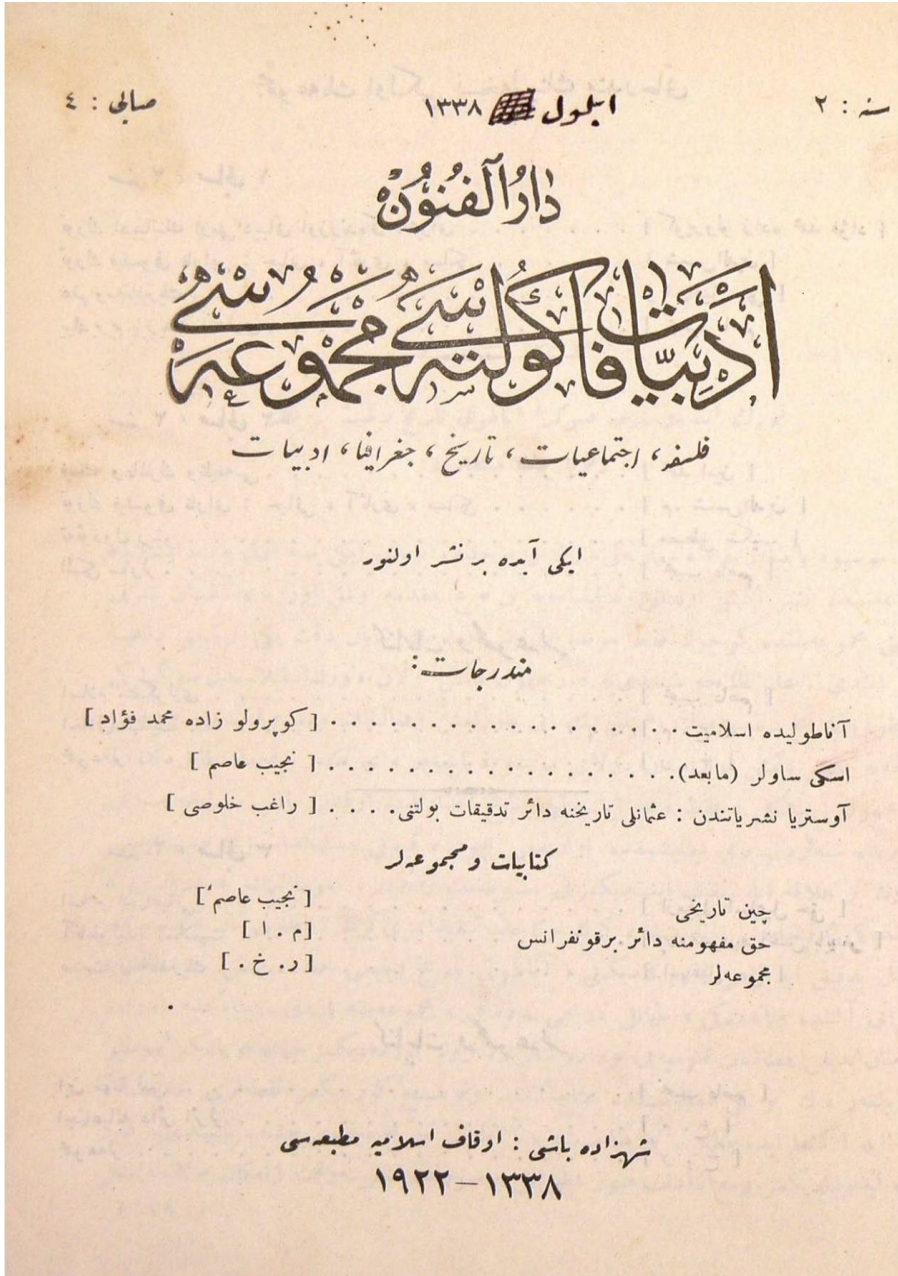 سنه : ٢ ایلول ١٣٣٨ صایی : ٤
دارالفنون
ادبیات فاکولته‌سی مجموعه‌سی
فلسفه ، اجتماعیات ، تاریخ ، جغرافیا ، ادبیات
ایکی آیده بر نشر اولنور
مندرجات :
آناطولیده اسلامیت . . . . . . . . . . . . . . . . . [ کوپرولو زاده محمد فؤاد ]
اسکی ساولر (مابعد) . . . . . . . . . . . . . . . . . [ نجیب عاصم ]
آوستریا نشریاتندن : عثمانلی تاریخنه دائر تدقیقات بولتنی . . . . [ راغب خلوصی ]
کتابیات و مجموعه‌لر
چین تاریخی [ نجیب عاصم ]
حق مفهومنه دائر برقونفرانس [ م . ا ]
مجموعه‌لر [ ر . خ . ]
شهزاده باشی : اوقاف اسلامیه مطبعه‌سی
١٣٣٨ — ١٩٢٢